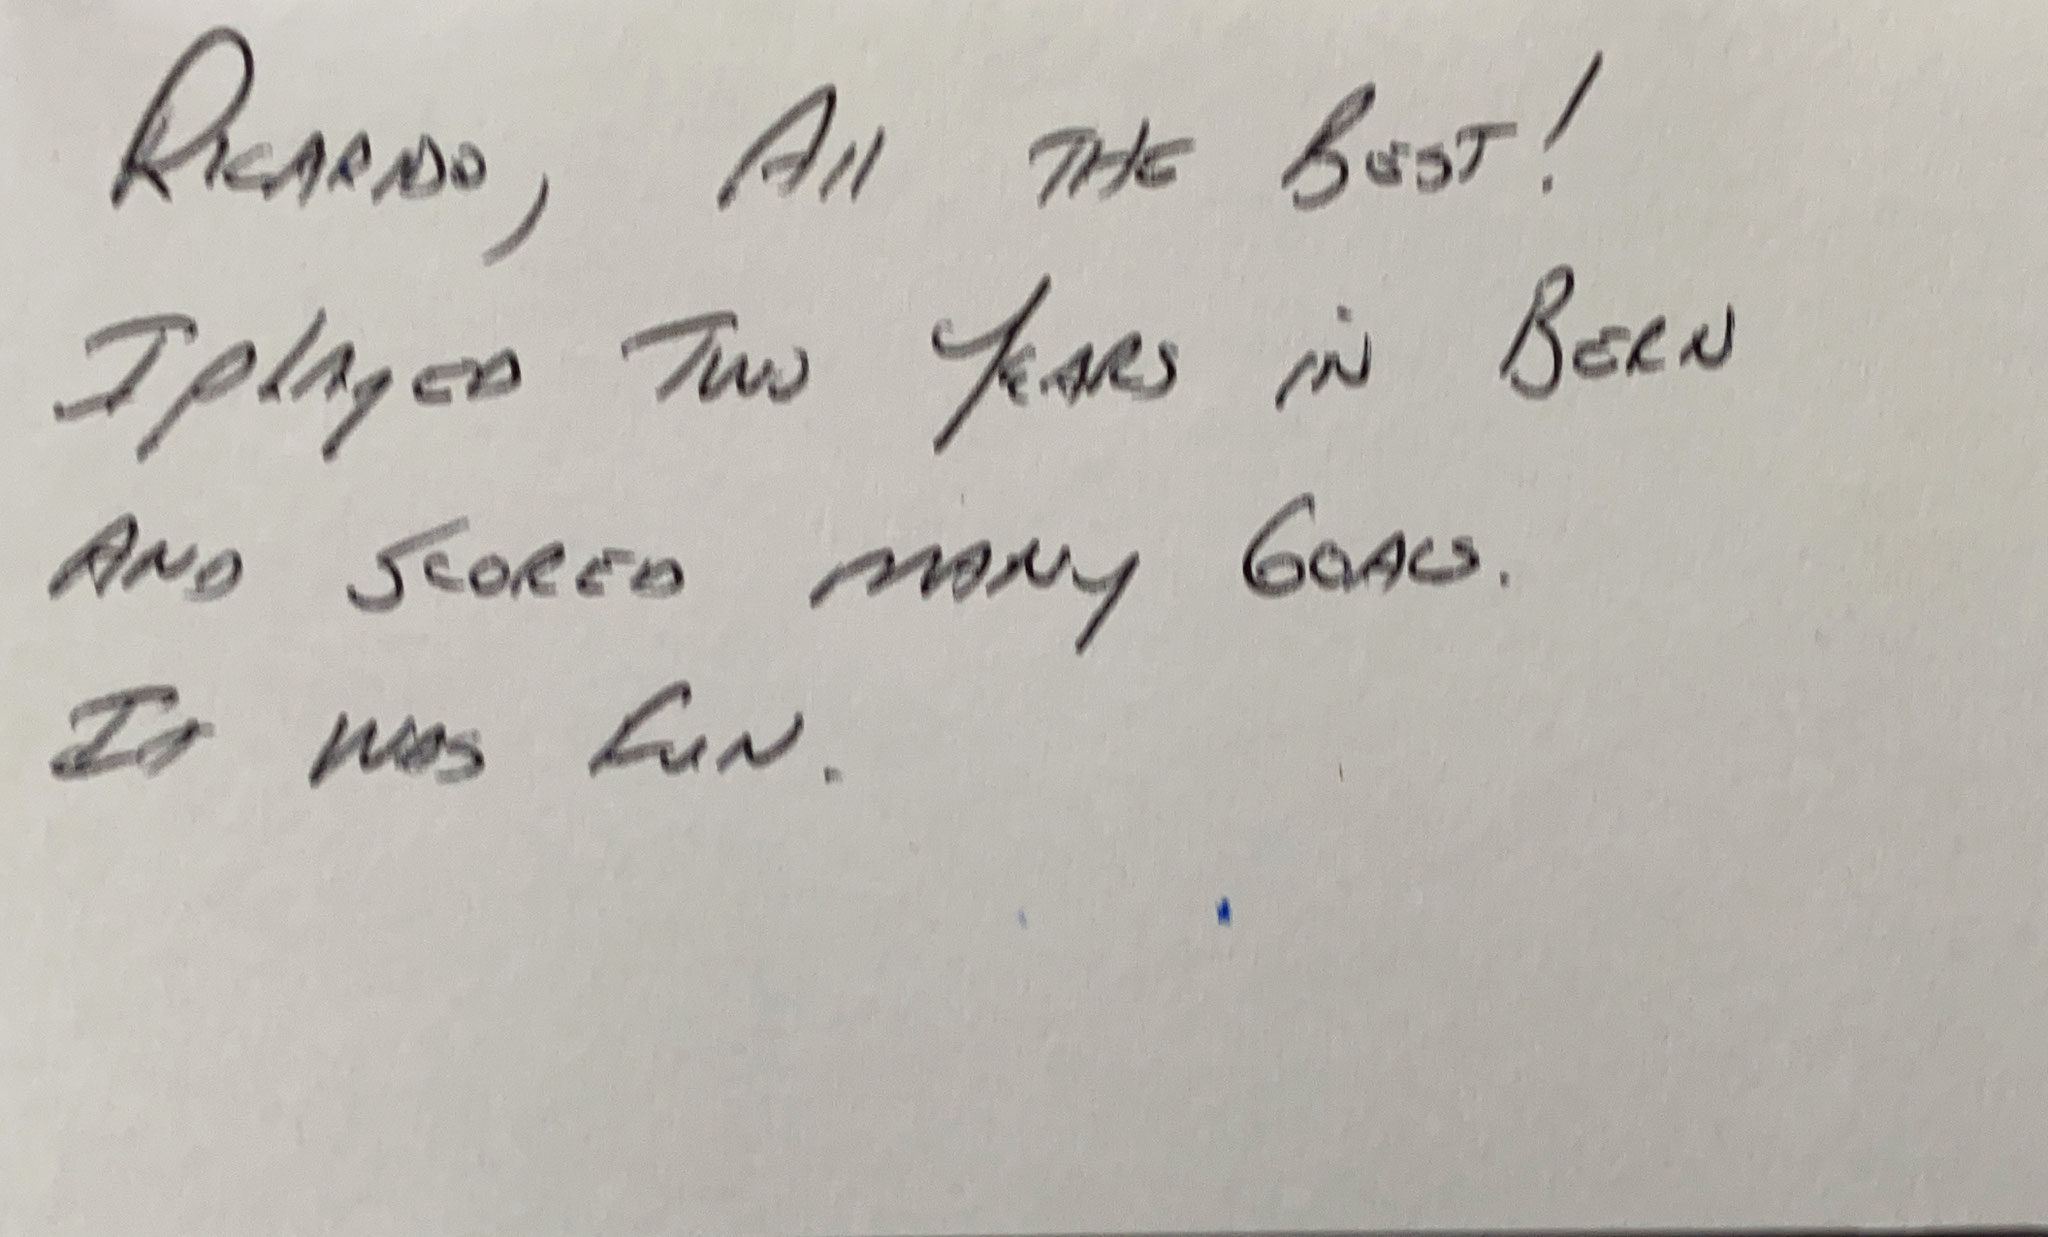 Ricardo, All the Best!
I played Two Years in Bern
And scored many Goals.
It was fun.